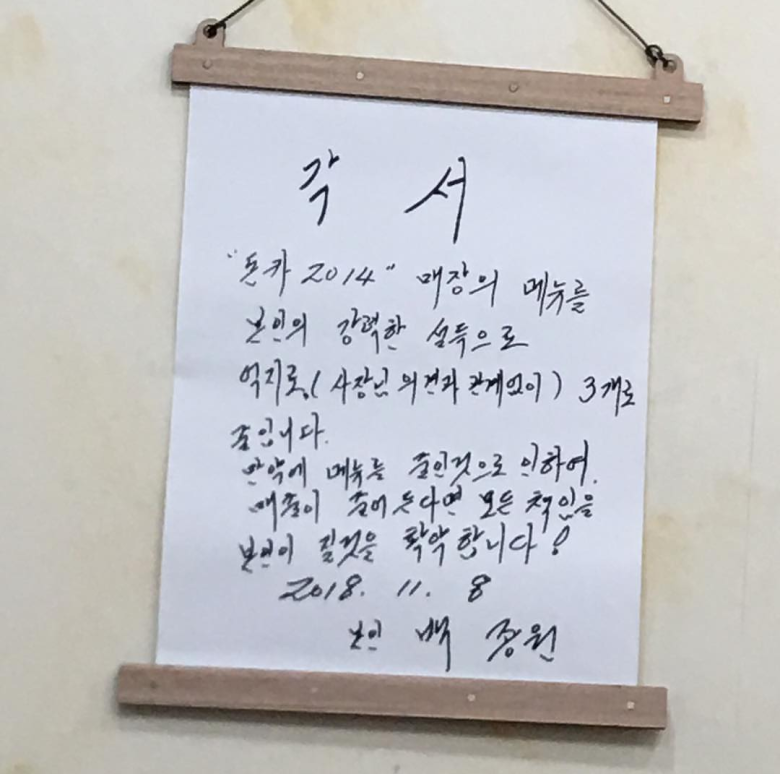 각 서
"돈카 2014" 매장의 메뉴를
본인의 강력한 설득으로
억지로,(사장님 의견과 관계없이) 3개로
줄입니다.
만약에 메뉴를 줄인것으로 인하여,
매출이 줄어든다면 모든 책임을
본인이 질것을 확약합니다!
2018. 11. 8
본인 백종원